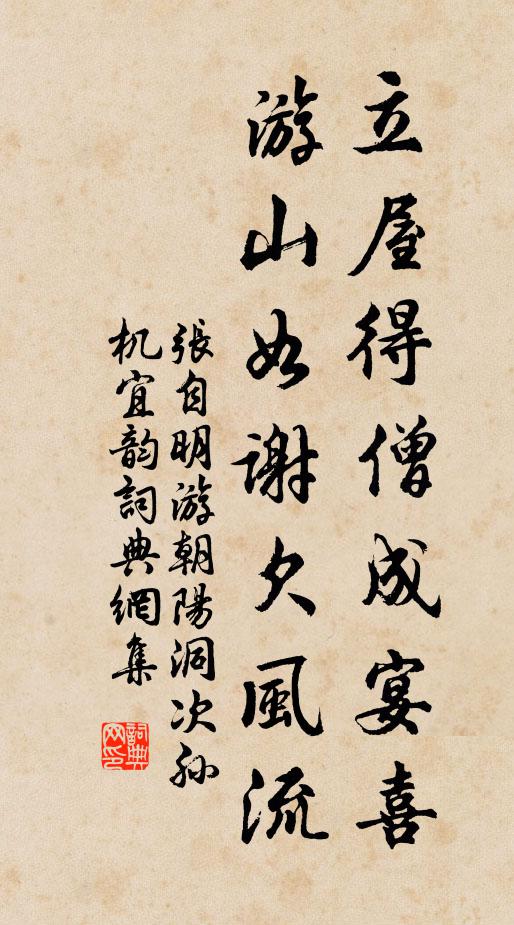 立屋得僧成宴喜
游山如謝欠風流
張自明游朝陽洞次孙
机宜韵詞典網集
詞典网印